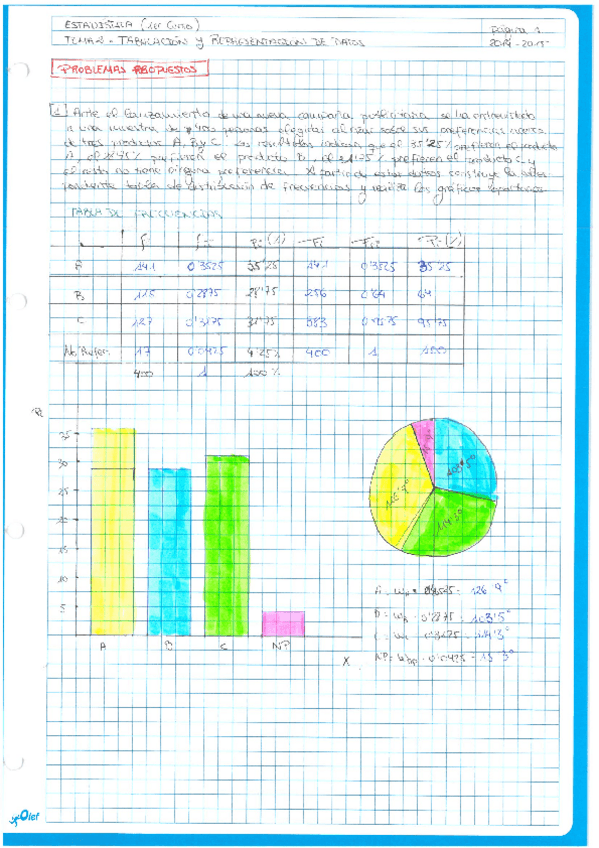 ESTADÍSTICA (1er Curso)
Página 1
TEMA 2 - TABULACIÓN Y REPRESENTACION DE DATOS
2014 - 2015
PROBLEMAS PROPUESTOS
1 Ante el lanzamiento de una nueva campaña publicitaria se ha entrevistado
a una muestra de 400 personas elegidas al azar sobre sus preferencias acerca
de tres productos A, B y C. Los resultados indican que el 35'25% prefieren el producto
A, el 28'75% prefieren el producto B, el 31'75% prefieren el producto C y
el resto no tiene ninguna preferencia. A partir de estos datos construye la
tabla de distribución de frecuencias y realiza los gráficos
TABLA DE FRECUENCIAS
A 141 0'3525 35'25 141 0'3525 35'25
B 115 0'2875 28'75 256 0'64 64
C 127 0'3175 31'75 383 0'9575 95'75
No Prefer. 17 0'0425 4'25% 400 1 100
400 1 100%
35
30
25
20
15
10
5
A B C NP
X
126'9°
103'5°
114'3°
A = 0'3525 = 126'9°
B = 0'2875 = 103'5°
C = 0'3175 = 114'3°
NP = 0'0425 = 15'3°
Olef